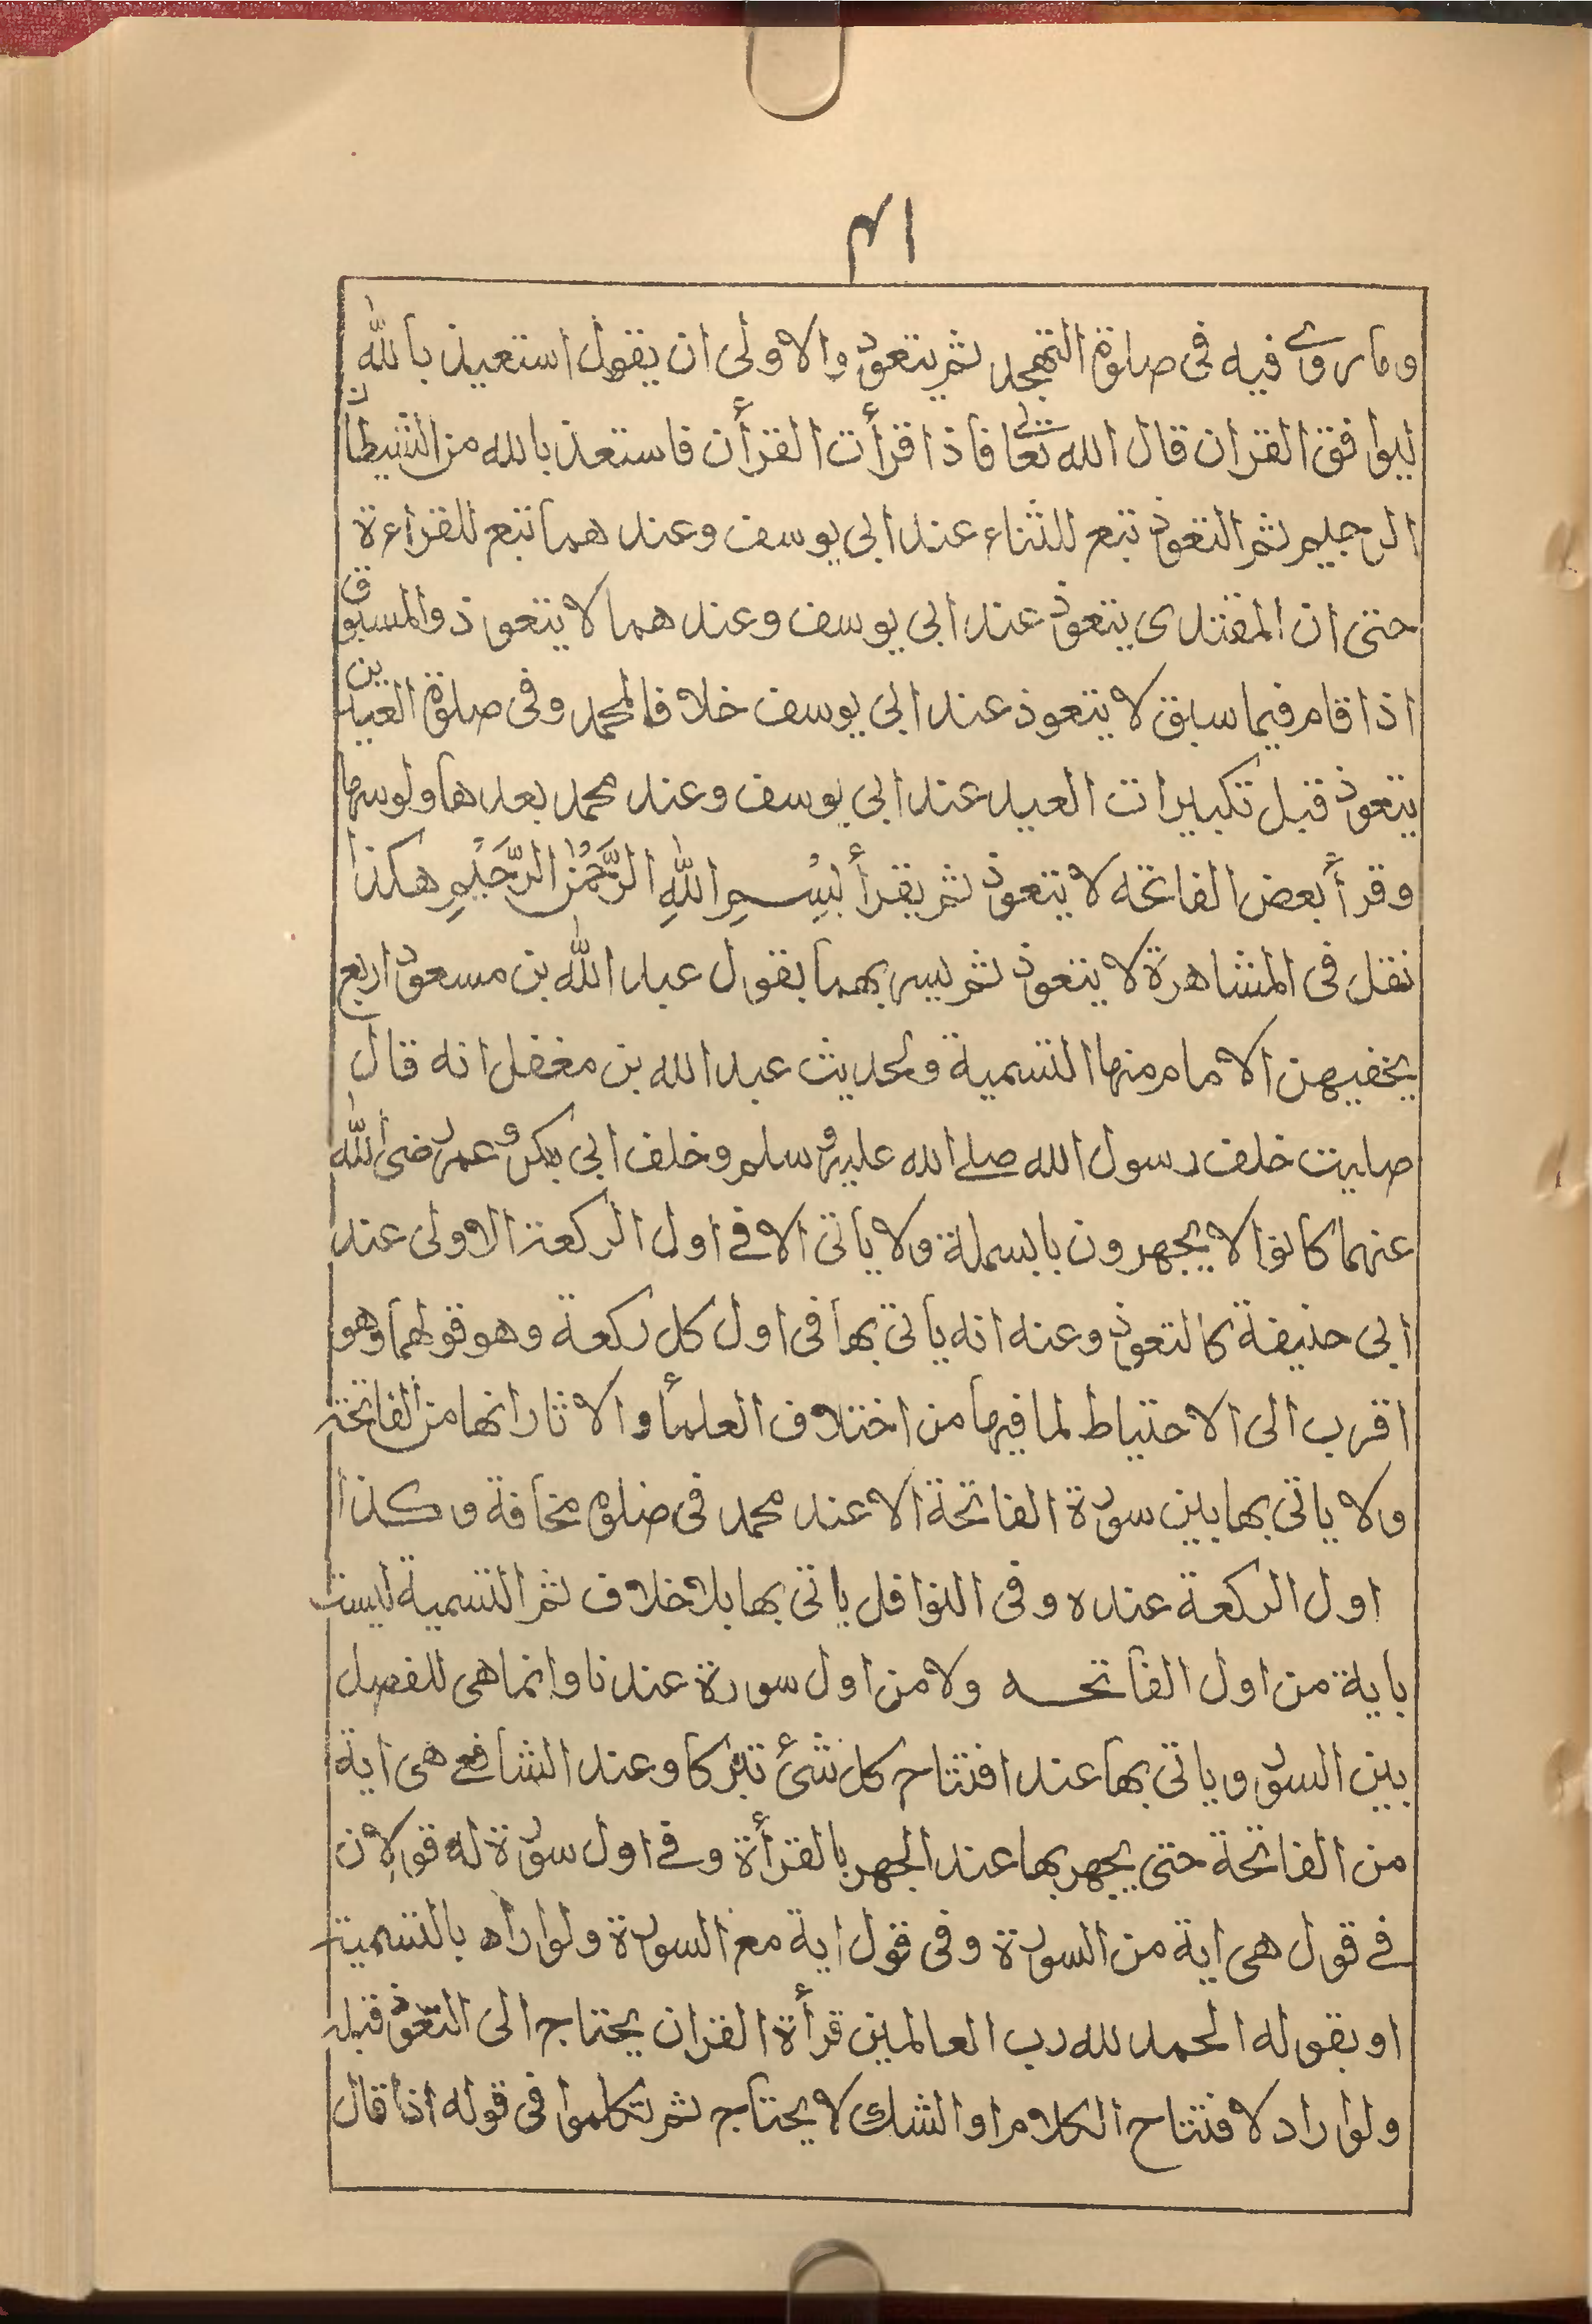 ١٨
وما روي فيه فى صلوة التهجد ثم يتعوذ والاولى ان يقول استعيذ بالله
ليوافق القران قال الله تعالى فاذا قرأت القرأن فاستعذ بالله من الشيطان
الرجيم ثم التعوذ تبع للثناء عند ابى يوسف وعندهما تبع للقراءة
حتى ان المقتدى يتعوذ عند ابى يوسف وعندهما لا يتعوذ والمسبوق
اذا قام فيما سبق لا يتعوذ عند ابى يوسف خلافا لمحمد وفى صلوة العيدين
يتعوذ قبل تكبيرات العيد عند ابى يوسف وعند محمد بعدها ولو سها
وقرأ بعض الفاتحه لا يتعوذ ثم يقرأ بِسْمِ اللّٰهِ الرَّحْمٰنِ الرَّحِيْمِ هكذا
نقل فى المشاهرة لا يتعوذ ثم يسر بهما بقول عبد الله بن مسعود اربع
يخفيهن الامام منها التسمية ولحديث عبد الله بن مغفل انه قال
صليت خلف رسول الله صلے الله عليه وسلم وخلف ابى بكر وعمر رضى الله
عنهما كانوا لا يجهرون بابسملة ولا ياتى الا فے اول الركعة الاولى عند
ابى حنيفة كالتعوذ وعنه انه ياتى بها فى اول كل ركعة وهو قولهما وهو
اقرب الى الاحتياط لما فيها من اختلاف العلمأ والاثار انها من الفاتحة
ولا ياتى بها بين سورة الفاتحة الا عند محمد فى صلوة مخافة وكذا
اول الركعة عنده وفى النوافل ياتى بها بلا خلاف ثم التسمية ليست
باية من اول الفاتحه ولا من اول سورة عندنا وانما هى للفصل
بين السور وياتى بها عند افتتاح كل شئ تبركا وعند الشافعے هى اية
من الفاتحة حتى يجهر بها عند الجهر بالقرأة وفے اول سورة له قولان
فے قول هى اية من السورة وفى قول اية مع السورة ولو اراد بالتسمية
او بقوله الحمد لله رب العالمين قرأة القران يحتاج الى التعوذ قبله
ولو اراد لافتتاح الكلام او الشك لا يحتاج ثم تكلموا فى قوله اذا قال